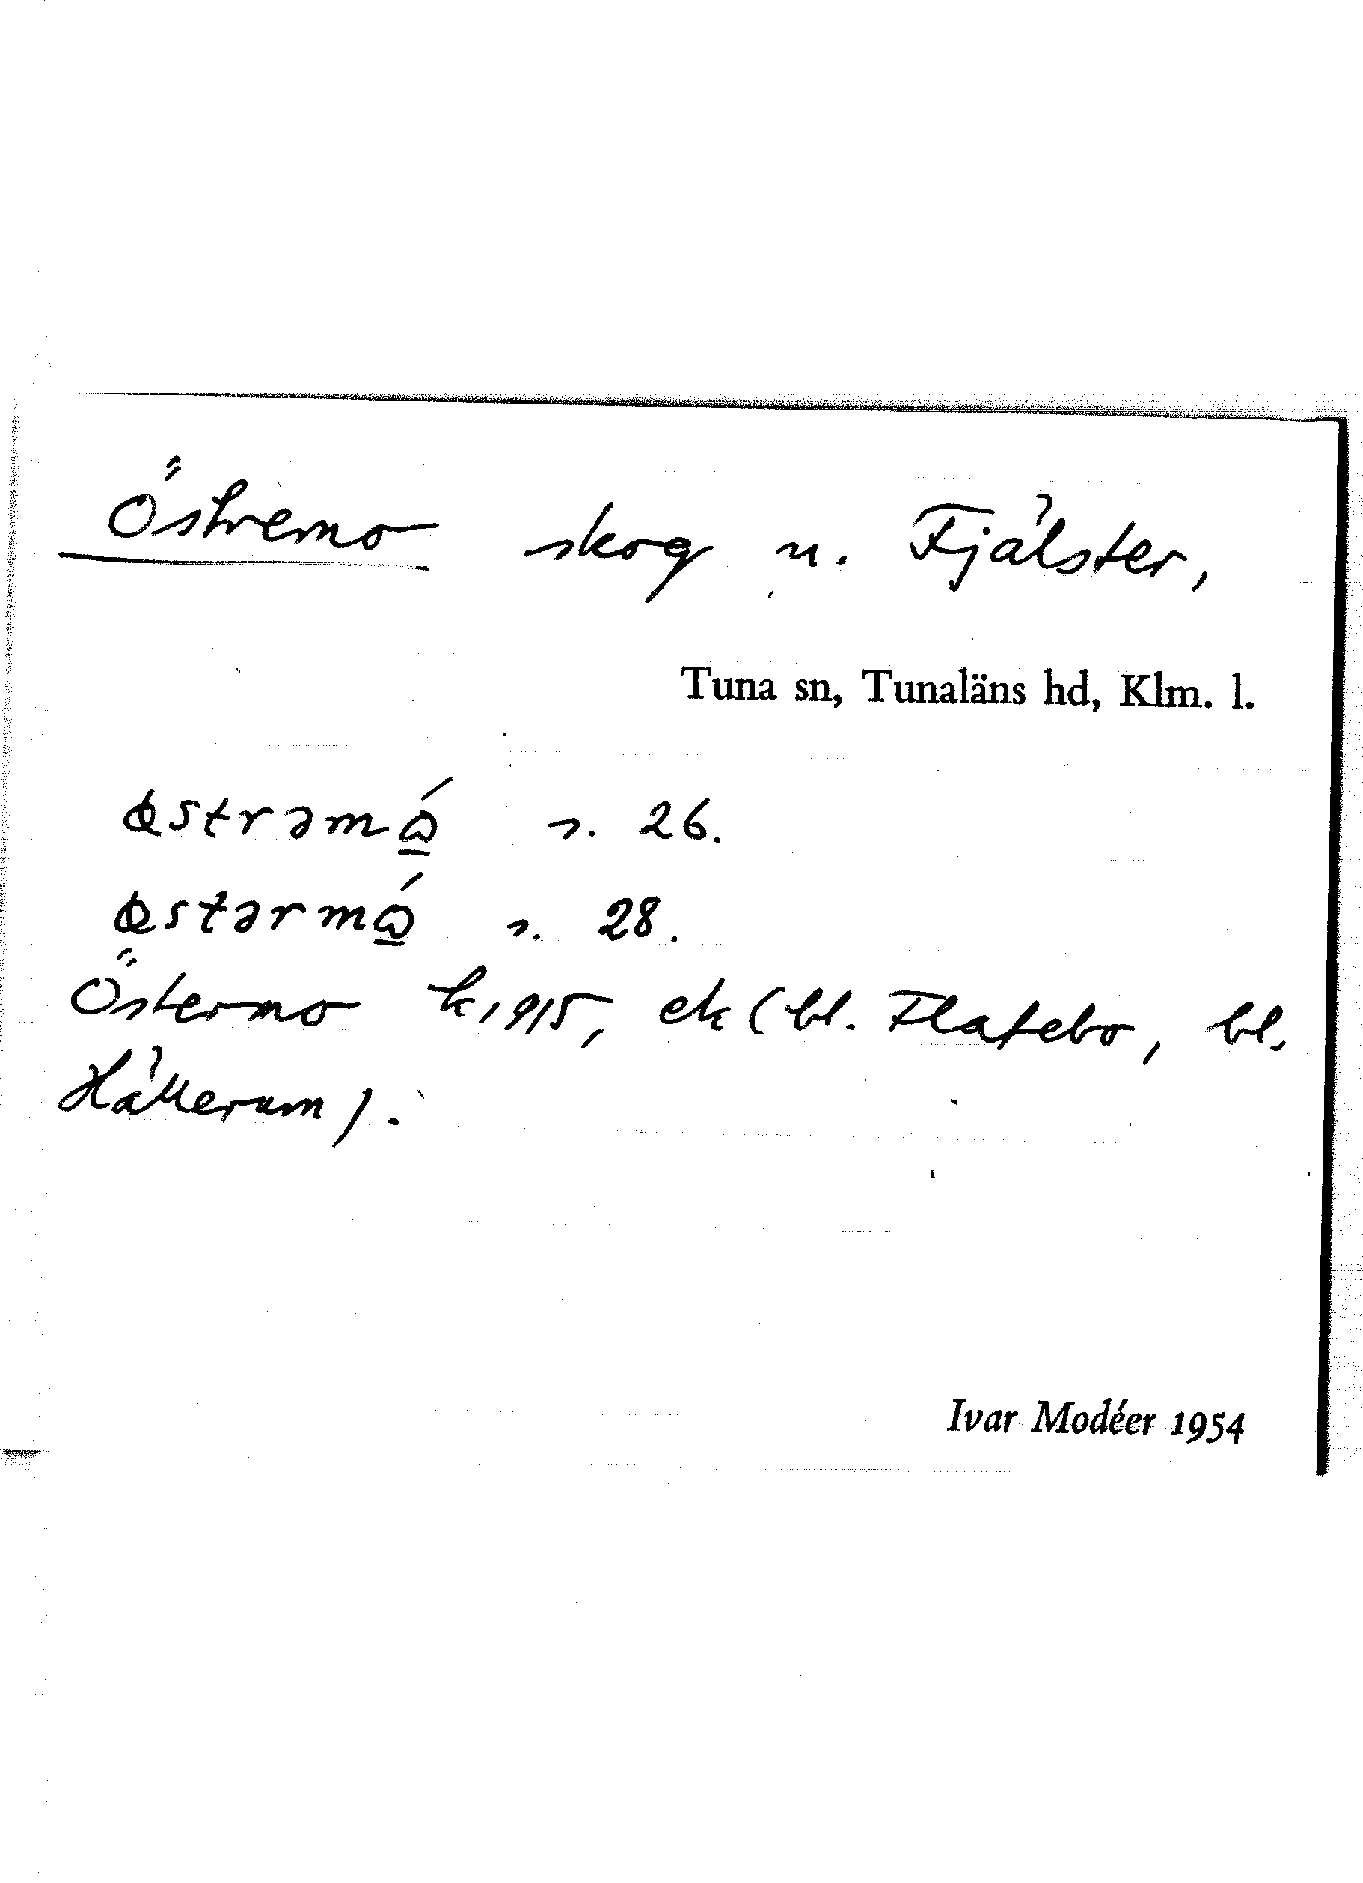 Östremo skog u. Fjälster,
Tuna sn, Tunaläns hd, Klm. l.
s. 26.
s. 28.
Östermo k 1915, ek (bl. Flatebo, bl.
Hällerum).
Ivar Modéer 1954